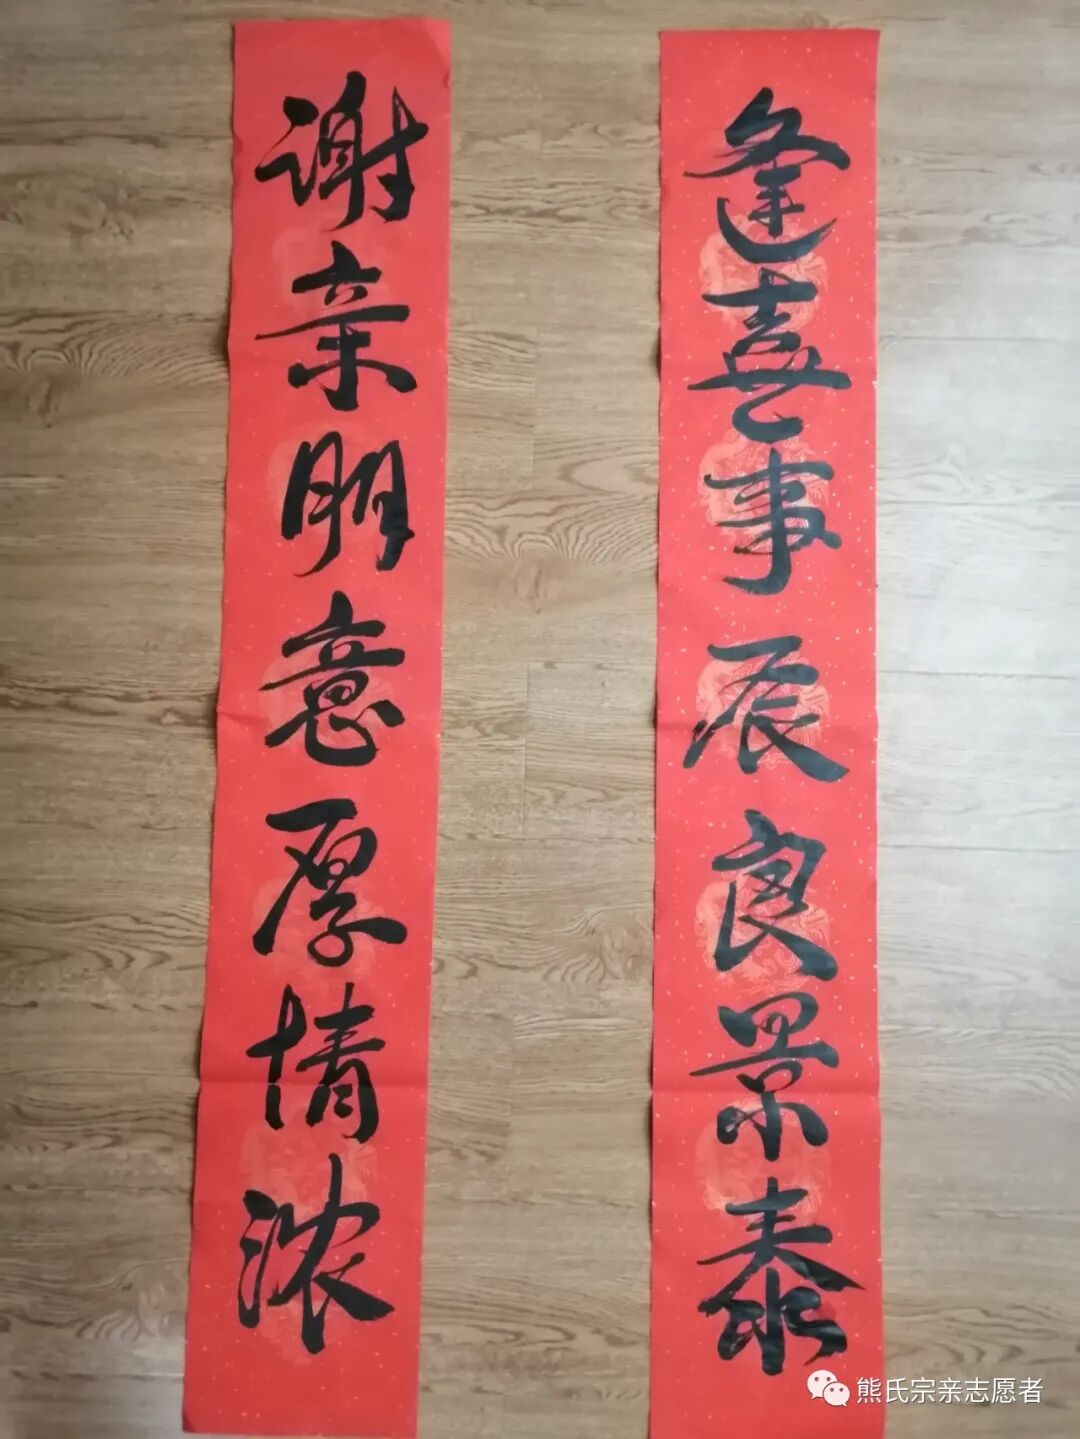 逢喜事辰良景泰
谢亲朋意厚情浓
熊氏宗亲志愿者